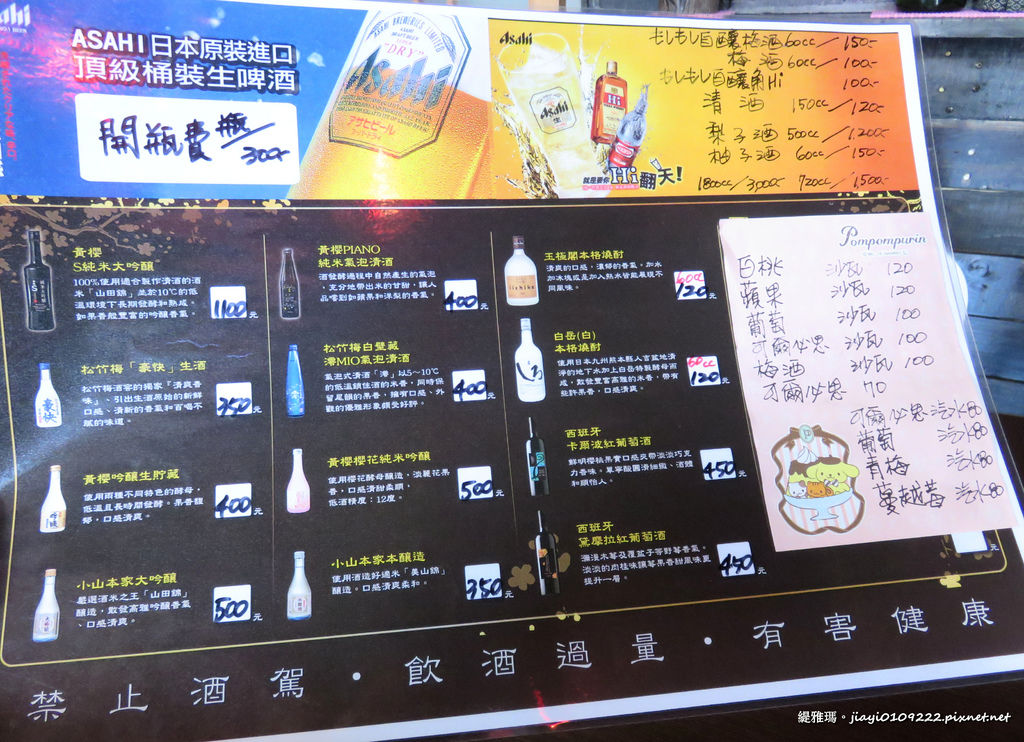 ASAHI日本原裝進口
頂級桶裝生啤酒
開瓶費 瓶/300-
ASAHI BREWERIES LIMITED
"DRY"
Asahi
アサヒビール
Asahi
Asahi
生
Hi
就是要你Hi翻天!
もしもし自釀梅酒60cc/150.-
梅酒60cc/100.-
もしもし自釀角Hi 100.-
清酒 150cc/120.-
梨子酒 500cc/1200.-
柚子酒 60cc/150.-
1800cc/3000.- 720cc/1,500.-
黃櫻
S純米大吟釀
100%使用適合製作清酒的酒
米「山田錦」並於10℃的低
溫環境下長期發酵和熟成。
如果香般豐富的吟釀香氣。
1100元
松竹梅「豪快」生酒
松竹梅酒窖的獨家「清爽香
味」、引出生酒原始的新鮮
口感、清新的香氣和百喝不
膩的味道。
350元
黃櫻吟釀生貯藏
使用兩種不同特色的酵母,
低溫且長時間發酵。果香馥
郁,口感清爽。
400元
小山本家大吟釀
嚴選酒米之王「山田錦」
釀造,散發高雅吟釀香氣
、口感清爽。
500元
黃櫻PIANO
純米氣泡清酒
酒發酵過程中自然產生的氣泡
,充分地帶出米的甘甜,讓人
品嚐到如蘋果和洋梨的香氣。
400元
松竹梅白壁藏
澪MIO氣泡清酒
氣泡式清酒「澪」以5~10℃
的低溫鎖住酒的米香,同時保
留尾韻的果香,擁有口感、外
觀的優雅形象頗受好評。
400元
黃櫻櫻花純米吟釀
使用櫻花酵母釀造,淡麗花果
香,口感清甜柔順。
低酒精度:12度。
500元
小山本家本釀造
使用酒造好適米「美山錦」
釀造。口感清爽柔和。
350元
玉極閣本格燒酎
清爽的口感,濃郁的香氣,加水
加冰塊或是加入熱水皆能展現不
同風味。
60cc
120元
白岳(白)
本格燒酎
使用日本九州熊本縣人吉盆地清
淨的地下水加上白岳特製酵母而
成,散發豐富高雅的米香,帶有
些許果香,口感清爽。
60cc
120元
西班牙
卡爾波紅葡萄酒
鮮明櫻桃果實口感夾帶淡淡巧克
力香味。單寧酸圓滑細緻、酒體
和順怡人。
450元
西班牙
黛摩拉紅葡萄酒
瀰漫木莓及覆盆子等野莓香氣。
淡淡的肉桂味讓莓果香甜風味更
提升一層。
450元
元
Pompompurin
白桃 沙瓦 120
蘋果 沙瓦 120
葡萄 沙瓦 100
可爾必思 沙瓦 100
梅酒 沙瓦 100
可爾必思 70
可爾必思汽水80
葡萄 汽水80
青梅 汽水80
蔓越莓 汽水80
禁止酒駕・飲酒過量・有害健康
緹雅瑪。jiayi0109222.pixnet.net